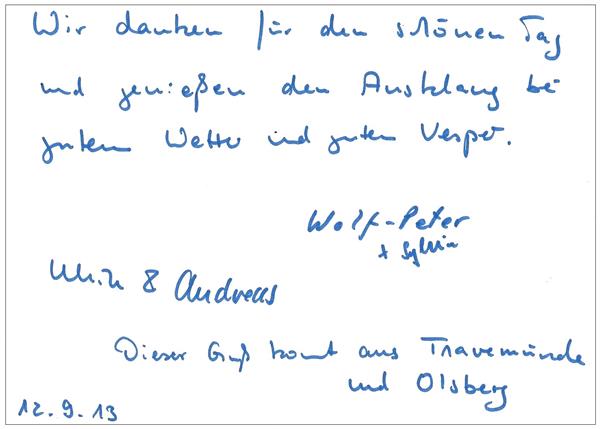 Wir danken für den schönen Tag
und genießen den Ausklang bei
gutem Wetter und guten Vesper.
Wolf-Peter
+ Sylvia
Ulrich & Andreas
Dieser Gruß komt aus Travemünde
und Olsberg
12.9.13